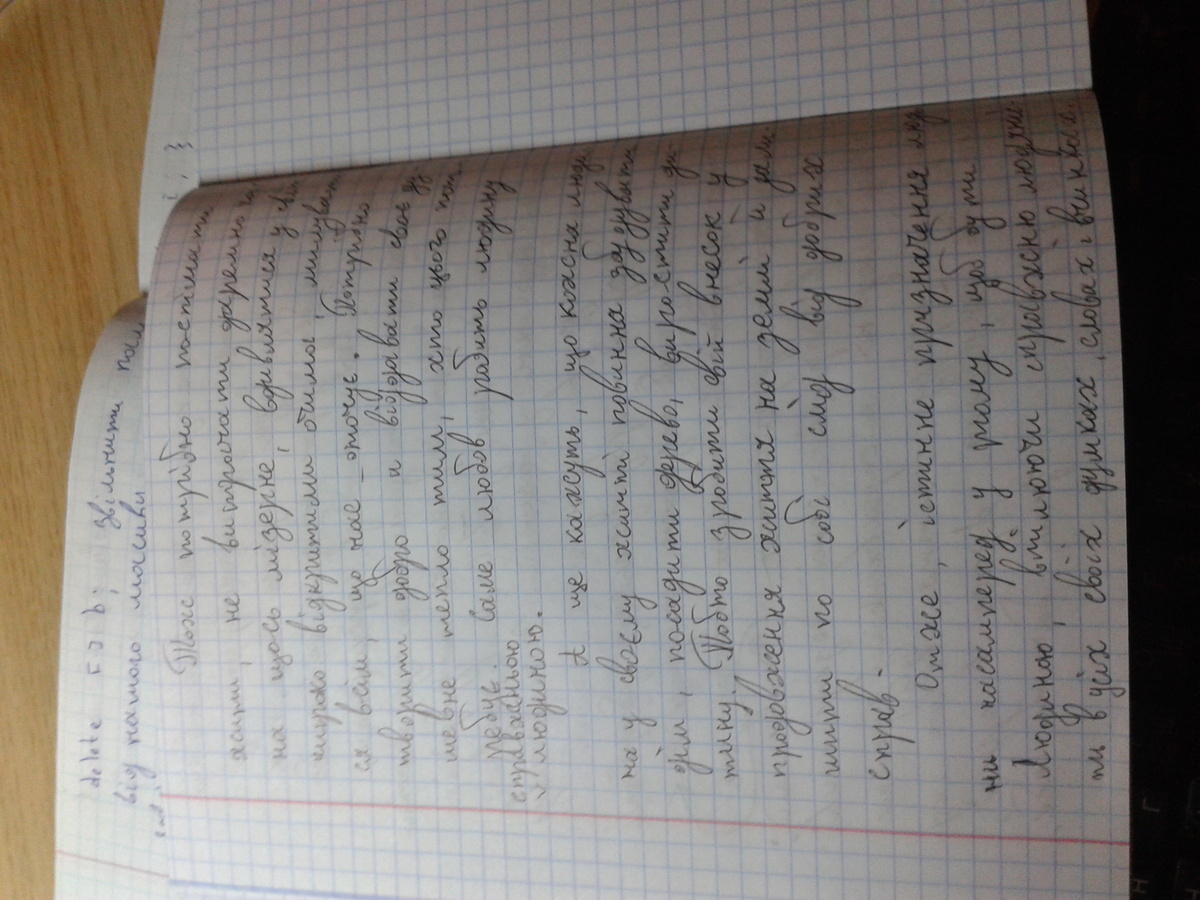 delete [] b; звільнити
від   ного масиви
Тож потрібно поспішати
жити, не витрачати даремно
на щось мізерне, вдивлятися у
широко відкритими очима і милувати
ся всім, що нас оточує. Потрібно
творити добро и віддавати своє ду-
шевне тепло тим, хто цього потре
требує. Саме любов робить людину
справжньою
людиною.
А ще кажуть, що кожна люди
на у своєму житті повинна збудувати
дім, посадити дерево, виростити ди-
тину. Тобто зробити свій внесок у
продовження життя на землі и зали-
шити по собі слід від добрих
справ.
Отже, істинне призначення люд
ни насамперед у тому, щоб бути
Людиною, втілюючи справжню людяніс
ть в усіх своїх думках, словах і вчинках.
{ , }